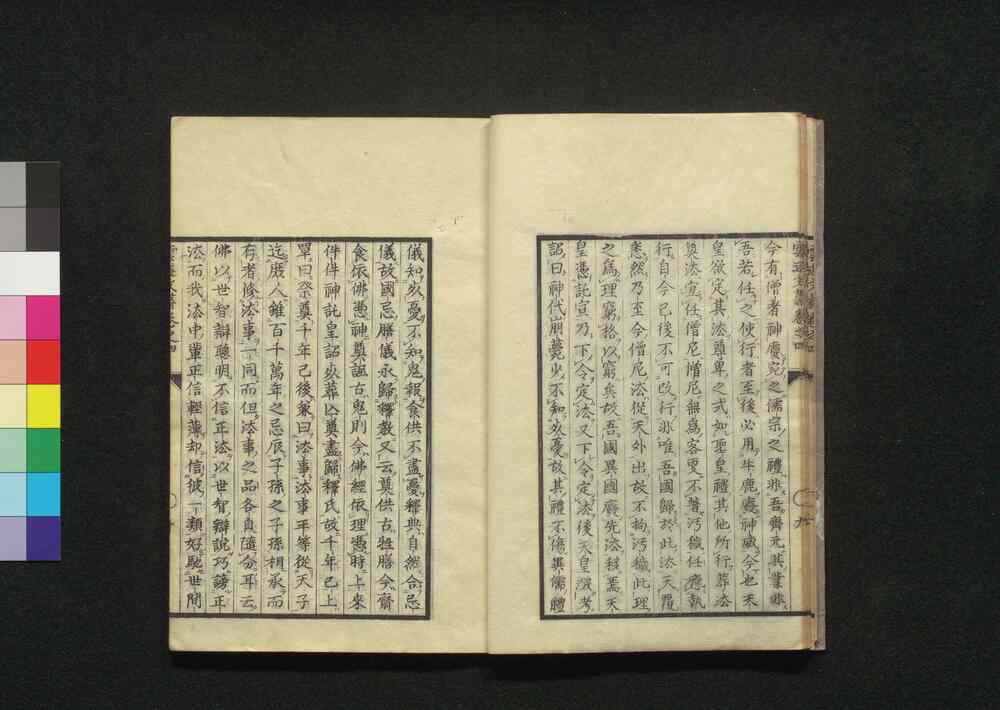 今有僧者神慶宛之儒宗之禮非吾齊元其業非
吾若任之使行者至後必用牛鹿慶神威今也天
皇欲定其法尊卑之式如聖皇禮其他所行葬法
奠法宣任僧尼僧尼無為客更不著汚穢任應執
行自今已後不可改行非唯吾國歸於此法天覆
悉然乃至令僧尼法從天外出故不拘汚穢此理
之為理窮格以窮矣故吾國異國廢先法移焉天
皇憑託宣乃下令定法又下令定法後天皇服考
詔曰神代崩薨少不知以憂故其禮不傷畢儒體
儀知以憂不知鬼報食供不盡憂釋典自然合忌
儀故國忌膳儀永歸釋教又云奠供古牲膳今齋
食依佛憑神奠誣古鬼則今佛經依理憑時上來
件件神託皇詔以葬以奠盡歸釋氏故千年已上
單曰祭奠千年已後兼曰法事法事平等從天子
迄庶人雖百千萬年之忌辰子孫之子孫相承而
有者修法事一同而但法事之品各貞隨分耳云
佛以世智辯聰明不信正法以世智辯說巧謗正
法而我法中輩正信輕薄却信彼一類好馳世間